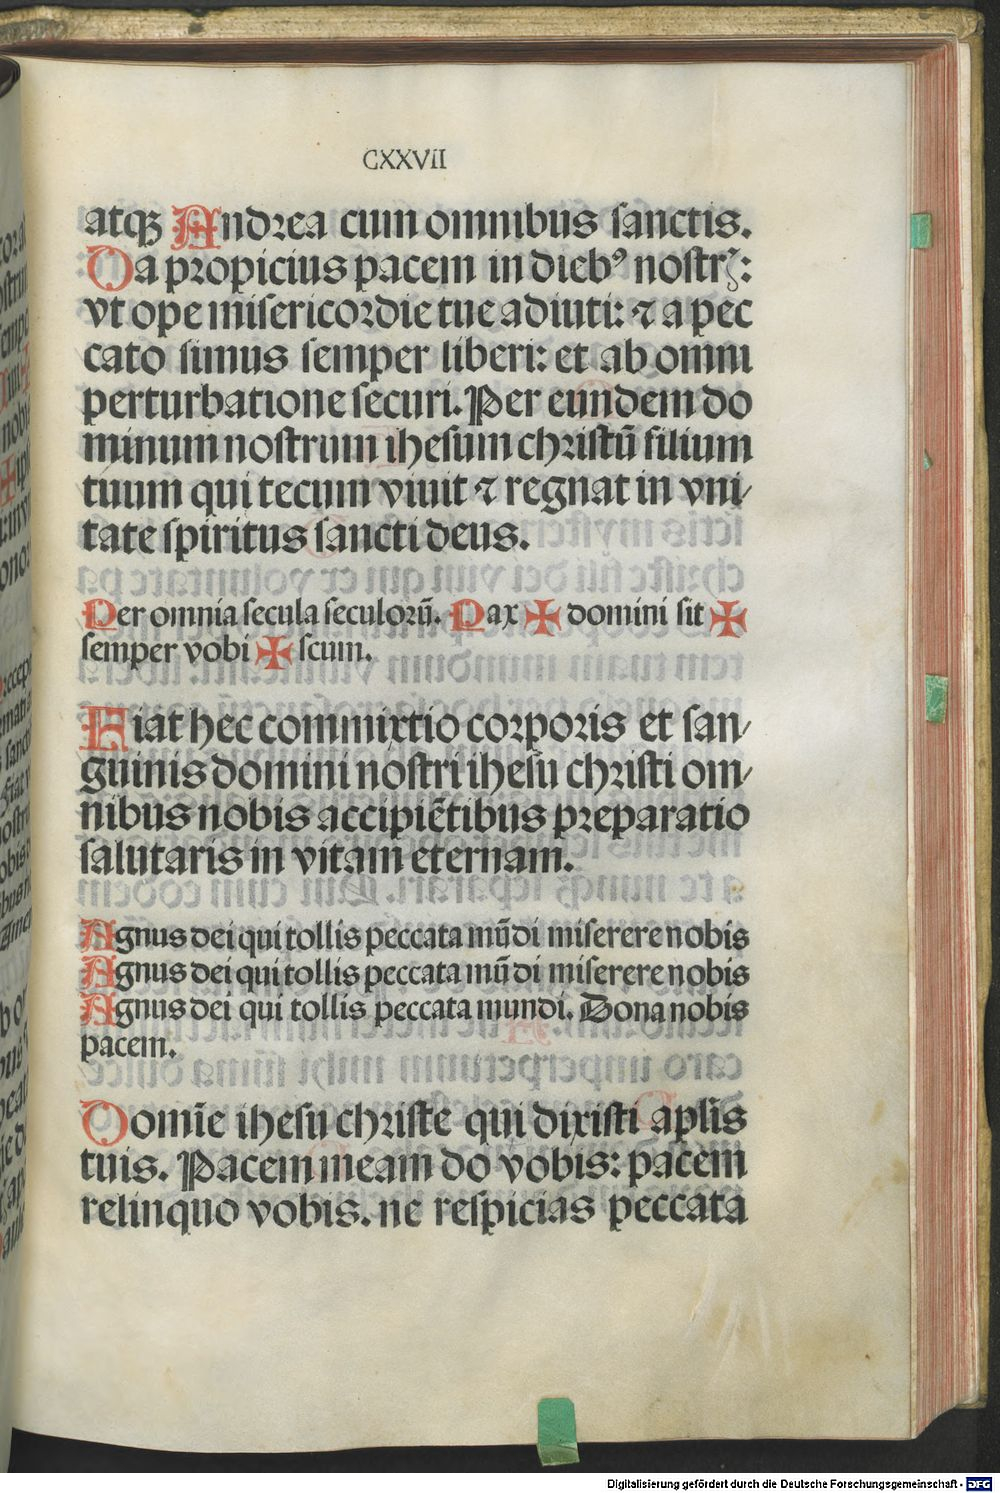 CXXVII
atqꝫ Andrea cum omnibus sanctis.
Da propicius pacem in diebꝰ nostrꝝ:
vt ope misericordie tue adiuti: ⁊ a pec
cato simus semper liberi: et ab omni
perturbatione securi. Per eundem do
minum nostrum ihesum christū filium
tuum qui tecum viuit ⁊ regnat in vni/
tate spiritus sancti deus.
Per omnia secula seculorū. Pax ✠ domini sit ✠
semper vobi ✠ scum.
Fiat hec commixtio corporis et san/
guinis domini nostri ihesu christi om/
nibus nobis accipiētibus preparatio
salutaris in vitam eternam.
Agnus dei qui tollis peccata mūdi miserere nobis
Agnus dei qui tollis peccata mūdi miserere nobis
Agnus dei qui tollis peccata mundi. Dona nobis
pacem.
Domīe ihesu christe qui dixisti apl̄is
tuis. Pacem meam do vobis: pacem
relinquo vobis. ne respicias peccata
Digitalisierung gefördert durch die Deutsche Forschungsgemeinschaft - DFG